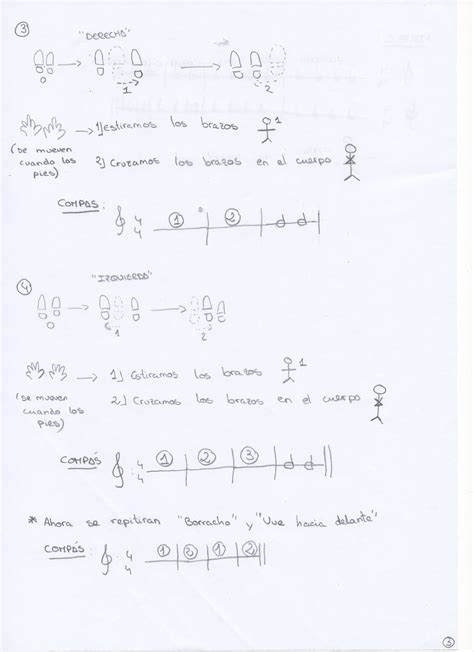 3
"DERECHO"
1
2
→ 1) estiramos los brazos 1
(se mueven
cuando los
pies)
2) Cruzamos los brazos en el cuerpo
COMPÁS: 4 4 1 2
4
"IZQUIERDO"
1
2
→ 1) Estiramos los brazos 1
(se mueven
cuando los
pies)
2) Cruzamos los brazos en el cuerpo
COMPÁS : 4 4 1 2 3
* Ahora se repitiran "Borracho" y "Vue hacia delante"
COMPÁS : 4 4 1 2 1 2
3